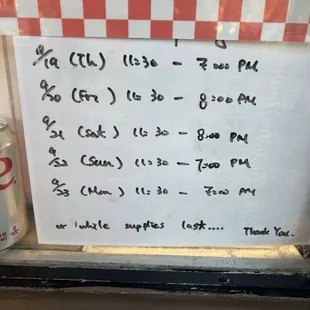 9/19 (Th) 11:30 - 7:00 PM
9/20 (Fri) 11:30 - 8:00 PM
9/21 (Sat) 11:30 - 8:00 PM
9/22 (Sun) 11:30 - 7:00 PM
9/23 (Mon) 11:30 - 7:00 PM
or while supplies last.... Thank You.